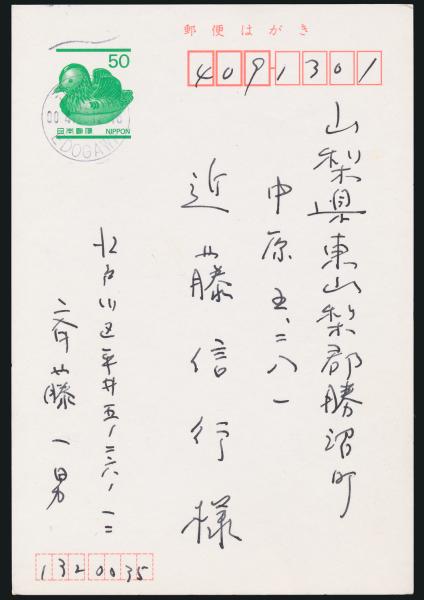 郵便はがき
50
日本郵便 NIPPON
EDOGAWA
4091301
山梨県東山梨郡勝沼町
中原五、二八一
近藤信行様
江戸川区平井五ノ二六ノ一二
斉藤一男
1320035